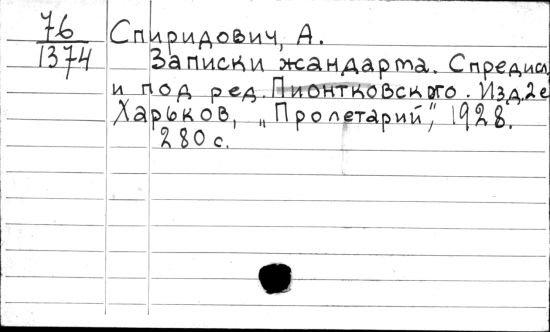 76
1374
Спиридович, А.
Записки жандарма. С предисл.
и под ред. Пионтковского. Изд. 2е
Харьков, „Пролетарий", 1928.
280 с.